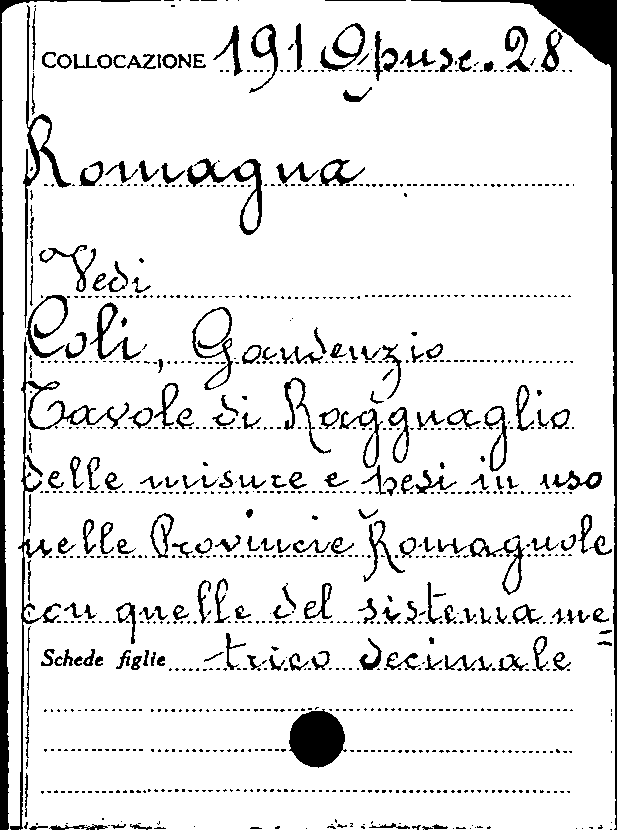 COLLOCAZIONE 191 Opusc. 28
Romagna
Vedi
Coli, Gaudenzio
Tavole di Ragguaglio
delle misure e pesi in uso
nelle Provincie Romagnole
con quelle del sistema me=
Schede figlie trico decimale